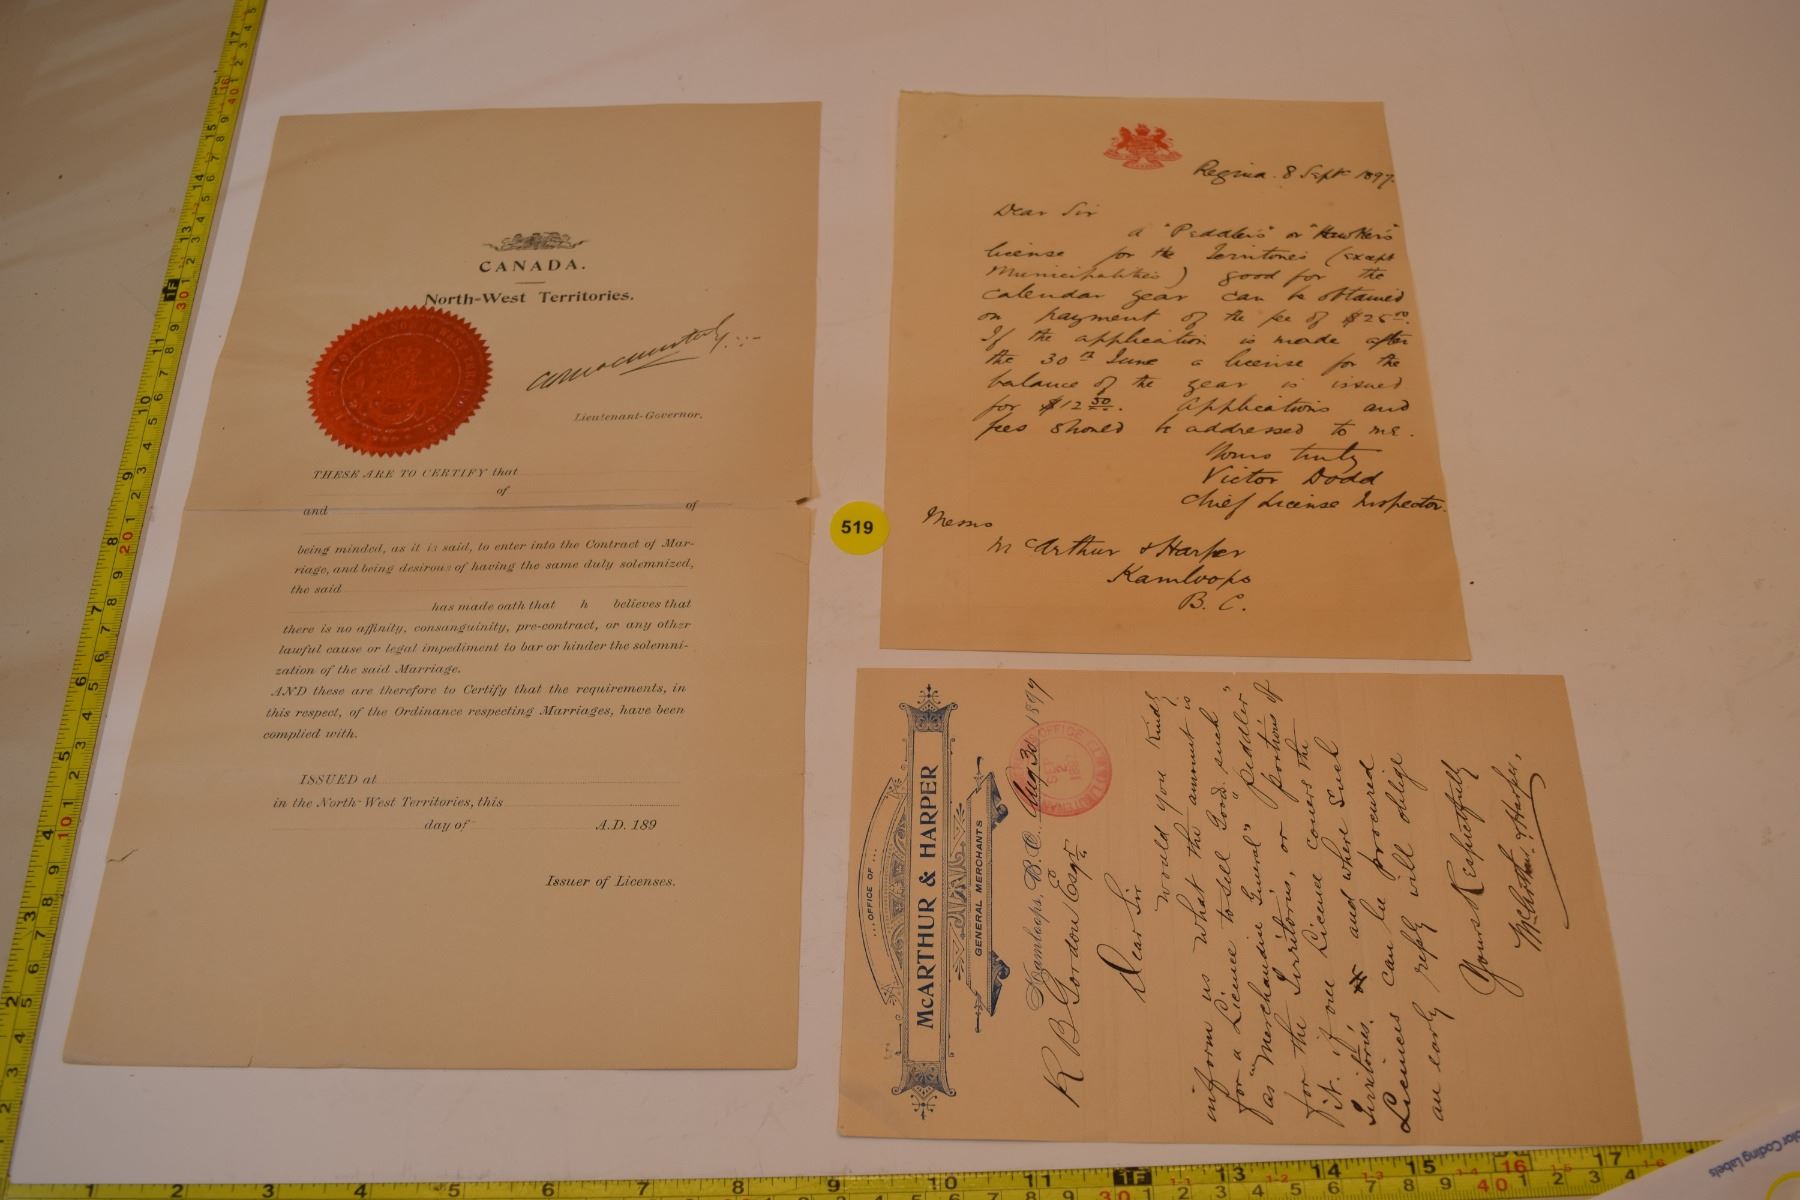 CANADA.
North-West Territories.
Lieutenant-Governor.
THESE ARE TO CERTIFY that
of
and of
being minded, as it is said, to enter into the Contract of Mar-
riage, and being desirous of having the same duly solemnized,
the said
has made oath that h believes that
there is no affinity, consanguinity, pre-contract, or any other
lawful cause or legal impediment to bar or hinder the solemni-
zation of the said Marriage.
AND these are therefore to Certify that the requirements, in
this respect, of the Ordinance respecting Marriages, have been
complied with.
ISSUED at
in the North-West Territories, this
day of A.D. 189
Issuer of Licenses.
519
Regina. 8 Sept 1897.
Dear Sir
A "Peddler's" or "Hawker's"
license for the Territories (except
Municipalities) good for the
calendar year can be obtained
on payment of the fee of $25.00.
If the application is made after
the 30th June a license for the
balance of the year is issued
for $12 50. Applications and
fees should be addressed to me.
Yours truly
Victor Dodd
Chief License Inspector.
Messrs
McArthur & Harper
Kamloops
B. C.
...OFFICE OF...
McARTHUR & HARPER
GENERAL MERCHANTS
Kamloops, B.C. Aug 30 1897
R B Gordon Esqr.
Dear Sir
Would you kindly
inform us what the amount is
for a Licence to sell Goods such
as "Merchandise General" "Peddler"
for the Territories, or portions of
it. if one Licence covers the
Territories. and where such
Licences can be procured
an early reply will oblige
Yours Respectfully
McArthur & Harper.
Color Coding
Labels